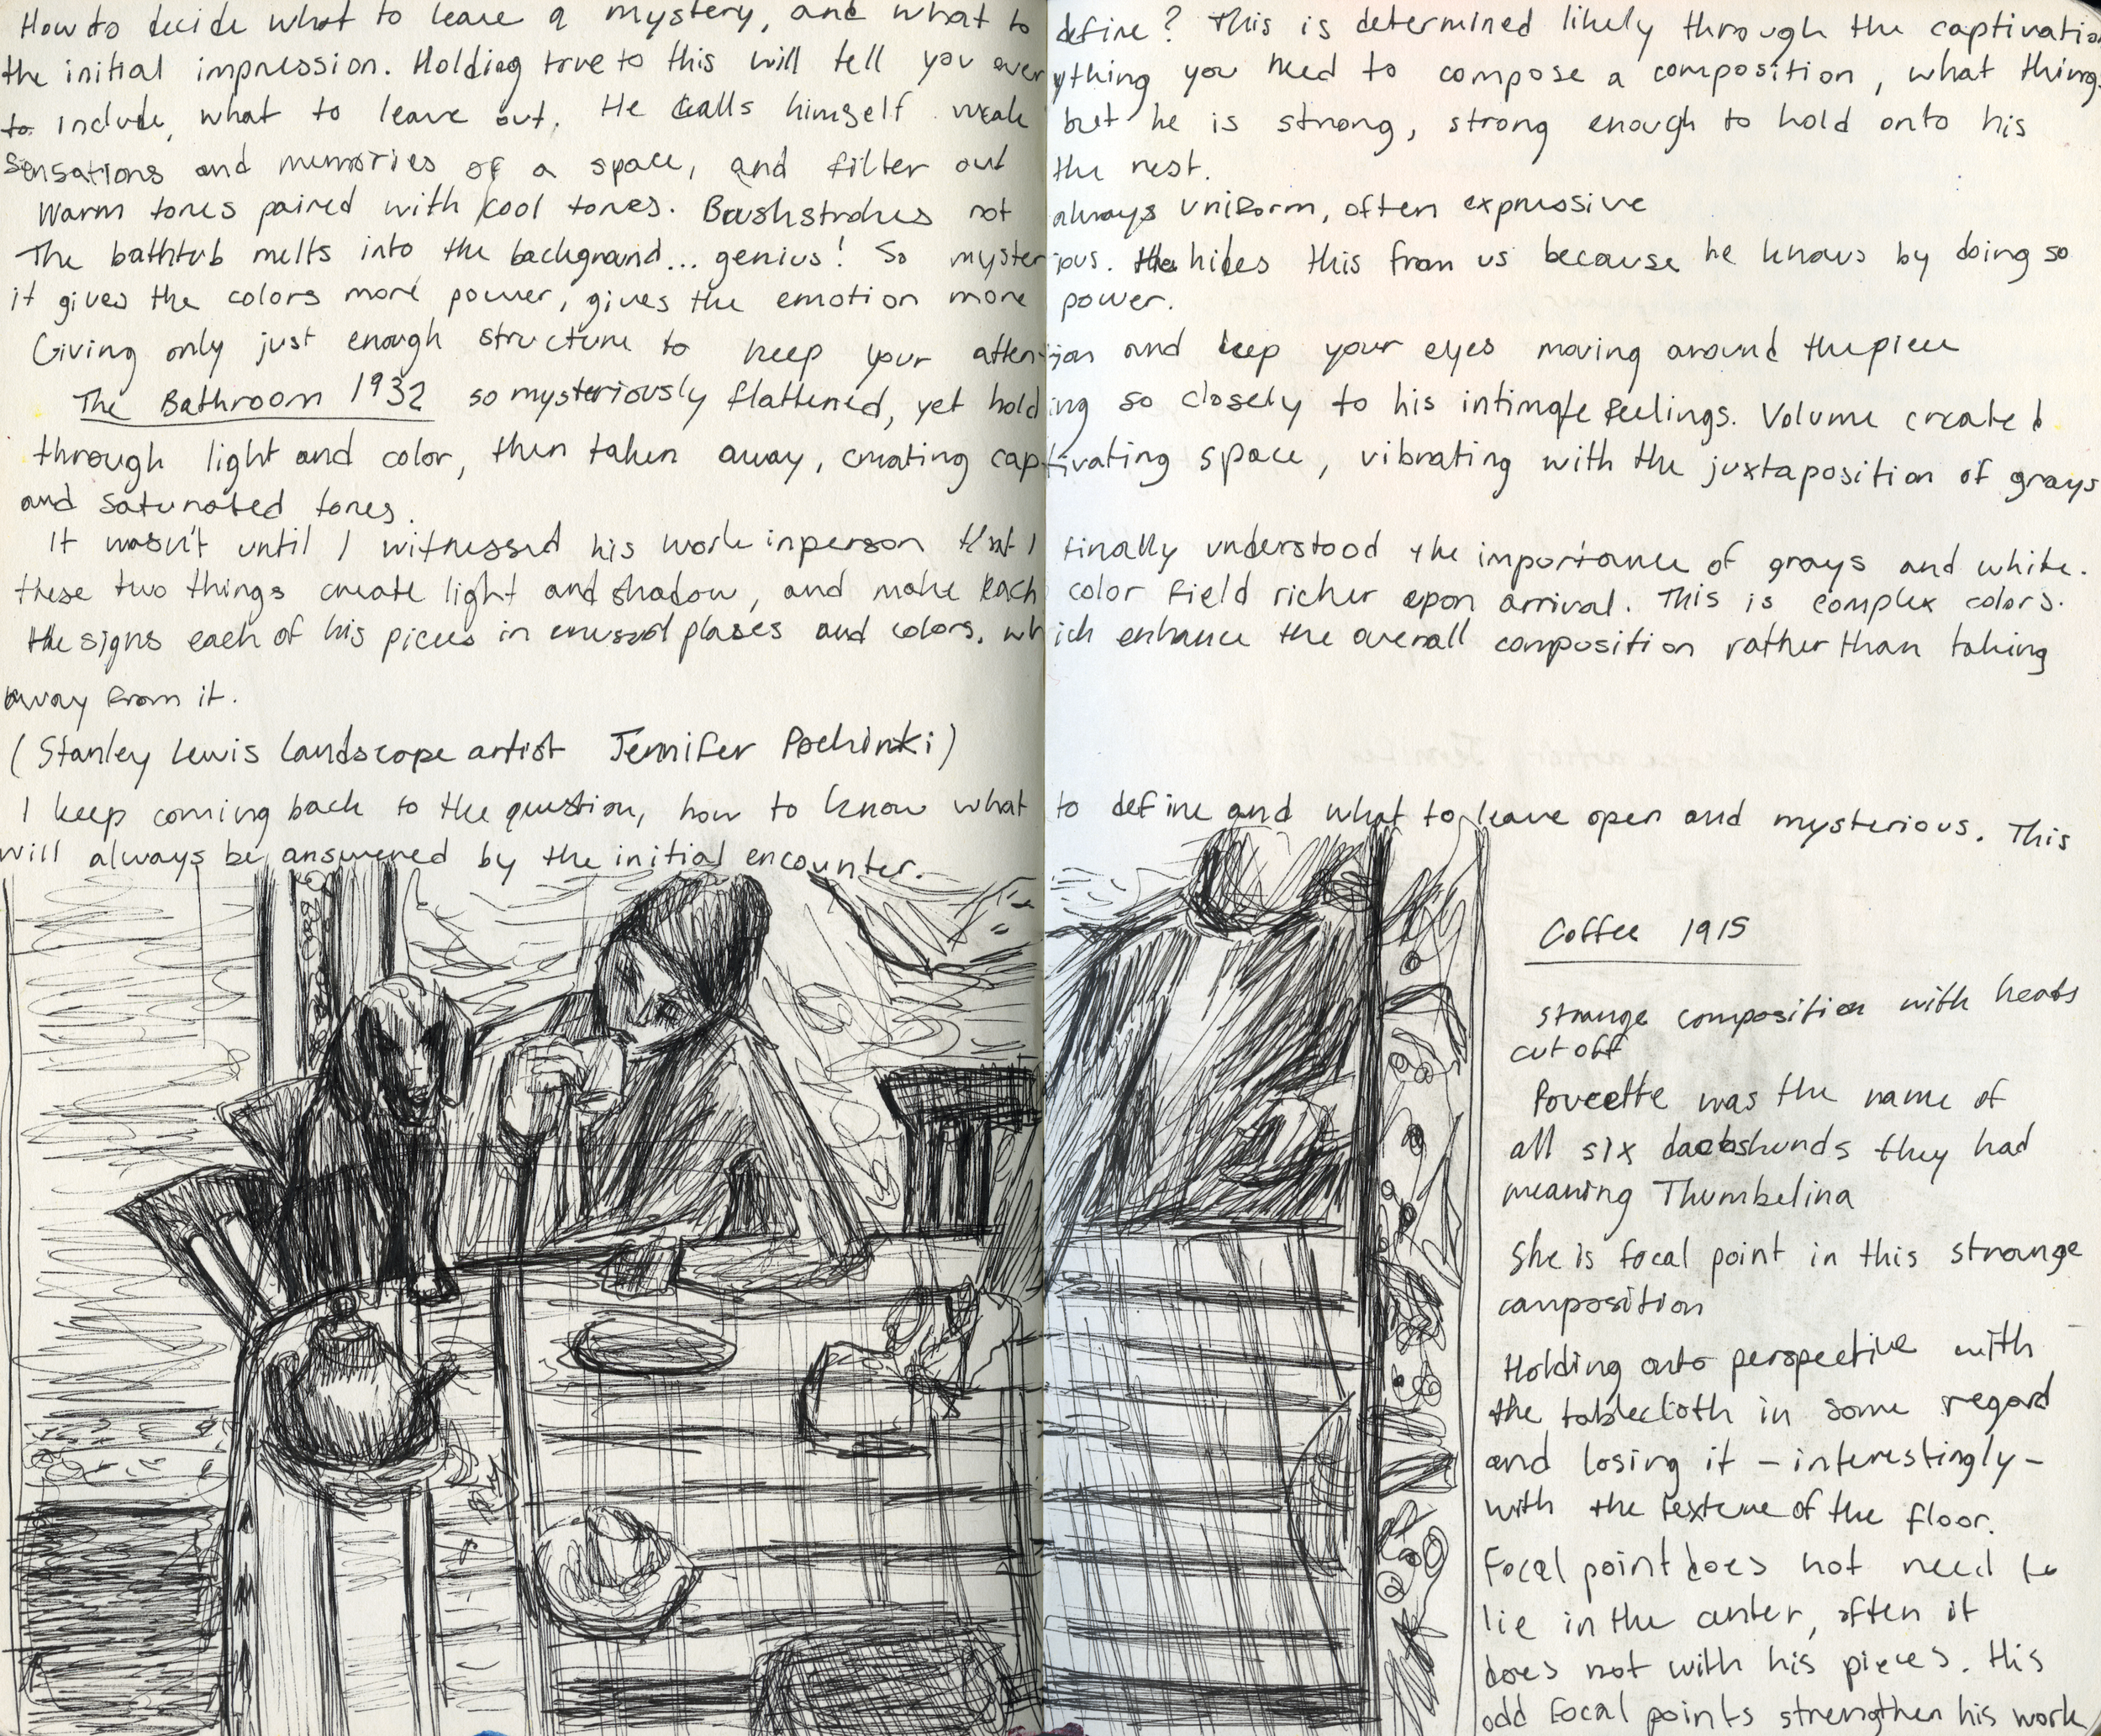 How to decide what to leave a mystery, and what to define? This is determined likely through the captivation
the initial impression. Holding true to this will tell you everything you need to compose a composition, what things
to include, what to leave out. He calls himself weak but he is strong, strong enough to hold onto his
sensations and memories of a space, and filter out the rest.
Warm tones paired with cool tones. Brushstrokes not always uniform, often expressive
The bathtub melts into the background... genius! So mysterious. He hides this from us because he knows by doing so
it gives the colors more power, gives the emotion more power.
Giving only just enough structure to keep your attention and keep your eyes moving around the piece
The Bathroom 1932 so mysteriously flattened, yet holding so closely to his intimate feelings. Volume created
through light and color, then taken away, creating captivating space, vibrating with the juxtaposition of grays
and saturated tones.
It wasn't until I witnessed his work in person that I finally understood the importance of grays and white.
these two things create light and shadow, and make each color field richer upon arrival. This is complex colors.
He signs each of his pieces in unusual plases and colors, which enhance the overall composition rather than taking
away from it.
(Stanley Lewis landscape artist Jennifer Pochinki)
I keep coming back to the question, how to know what to define and what to leave open and mysterious. This
will always be answered by the initial encounter.
Coffee 1915
strange composition with heads
cut off
Poucette was the name of
all six dachshunds they had
meaning Thumbelina
She is focal point in this strange
composition
Holding onto perspective with
the tablecloth in some regard
and losing it - interestingly -
with the texture of the floor.
Focal point does not need to
lie in the center, often it
does not with his pieces. His
odd focal points strengthen his work